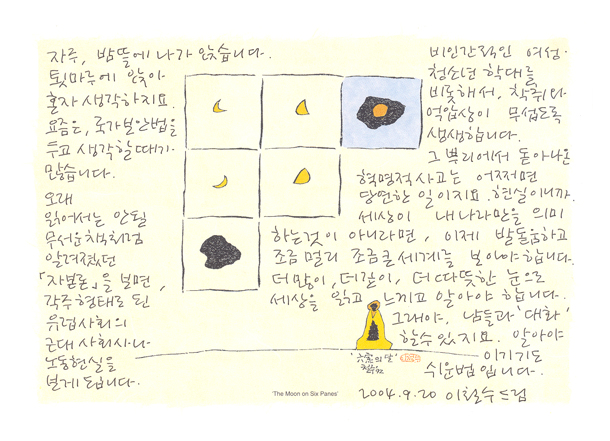 자주, 밤뜰에 나가 앉습니다.
툇마루에 앉아
혼자 생각하지요.
요즘은, 국가보안법을
두고 생각할때가
많습니다.
오래
읽어서는 안될
무서운책처럼
알려졌던
「자본론」을 보면,
각주형태로 된
유럽사회의
근대 사회사나
노동현실을
보게됩니다.
비인간적인 여성·
청소년 학대를
비롯해서, 착취와
억압상이 무섭도록
생생합니다.
그 뿌리에서 돋아나온
혁명적사고는 어쩌면
당연한 일이지요. 현실이니까.
세상이 내나라만을 의미
하는것이 아니라면, 이제 발돋움하고
조금 멀리 조금큰세계를 보아야합니다.
더많이, 더깊이, 더 따뜻한 눈으로
세상을 읽고 느끼고 알아야 합니다.
그래야, 남들과 '대화'
할수있지요. 알아야
이기기도
쉬운법입니다.
2004.9.20 이철수드림
'六窓의 달'
'The Moon on Six Panes'